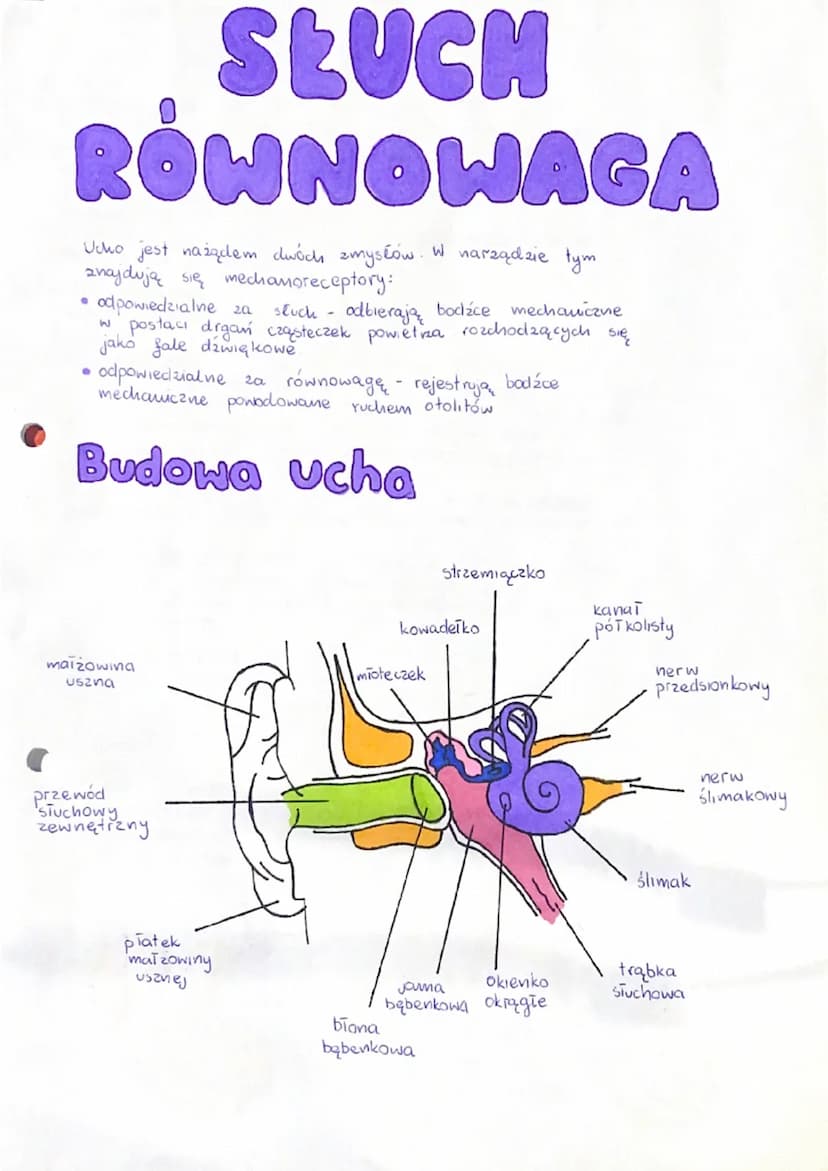 SŁUCH
RÓWNOWAGA
Ucho jest nażądem dwóch zmysłów. W narządzie tym
znajdują się mechanoreceptory:
• odpowiedzialne za słuch - odbierają bodźce mechaniczne
w postaci drgań cząsteczek powietrza rozchodzących się
jako fale dźwiękowe
• odpowiedzialne za równowagę - rejestrują bodźce
mechaniczne powodowane ruchem otolitów
Budowa ucha
strzemiączko
kanał
półkolisty
kowadełko
młoteczek
małżowina
uszna
nerw
przedsionkowy
przewód
słuchowy
zewnętrzny
nerw
ślimakowy
ślimak
płatek
małżowiny
usznej
trąbka
słuchowa
jama
bębenkowa
okienko
okrągłe
błona
bębenkowa